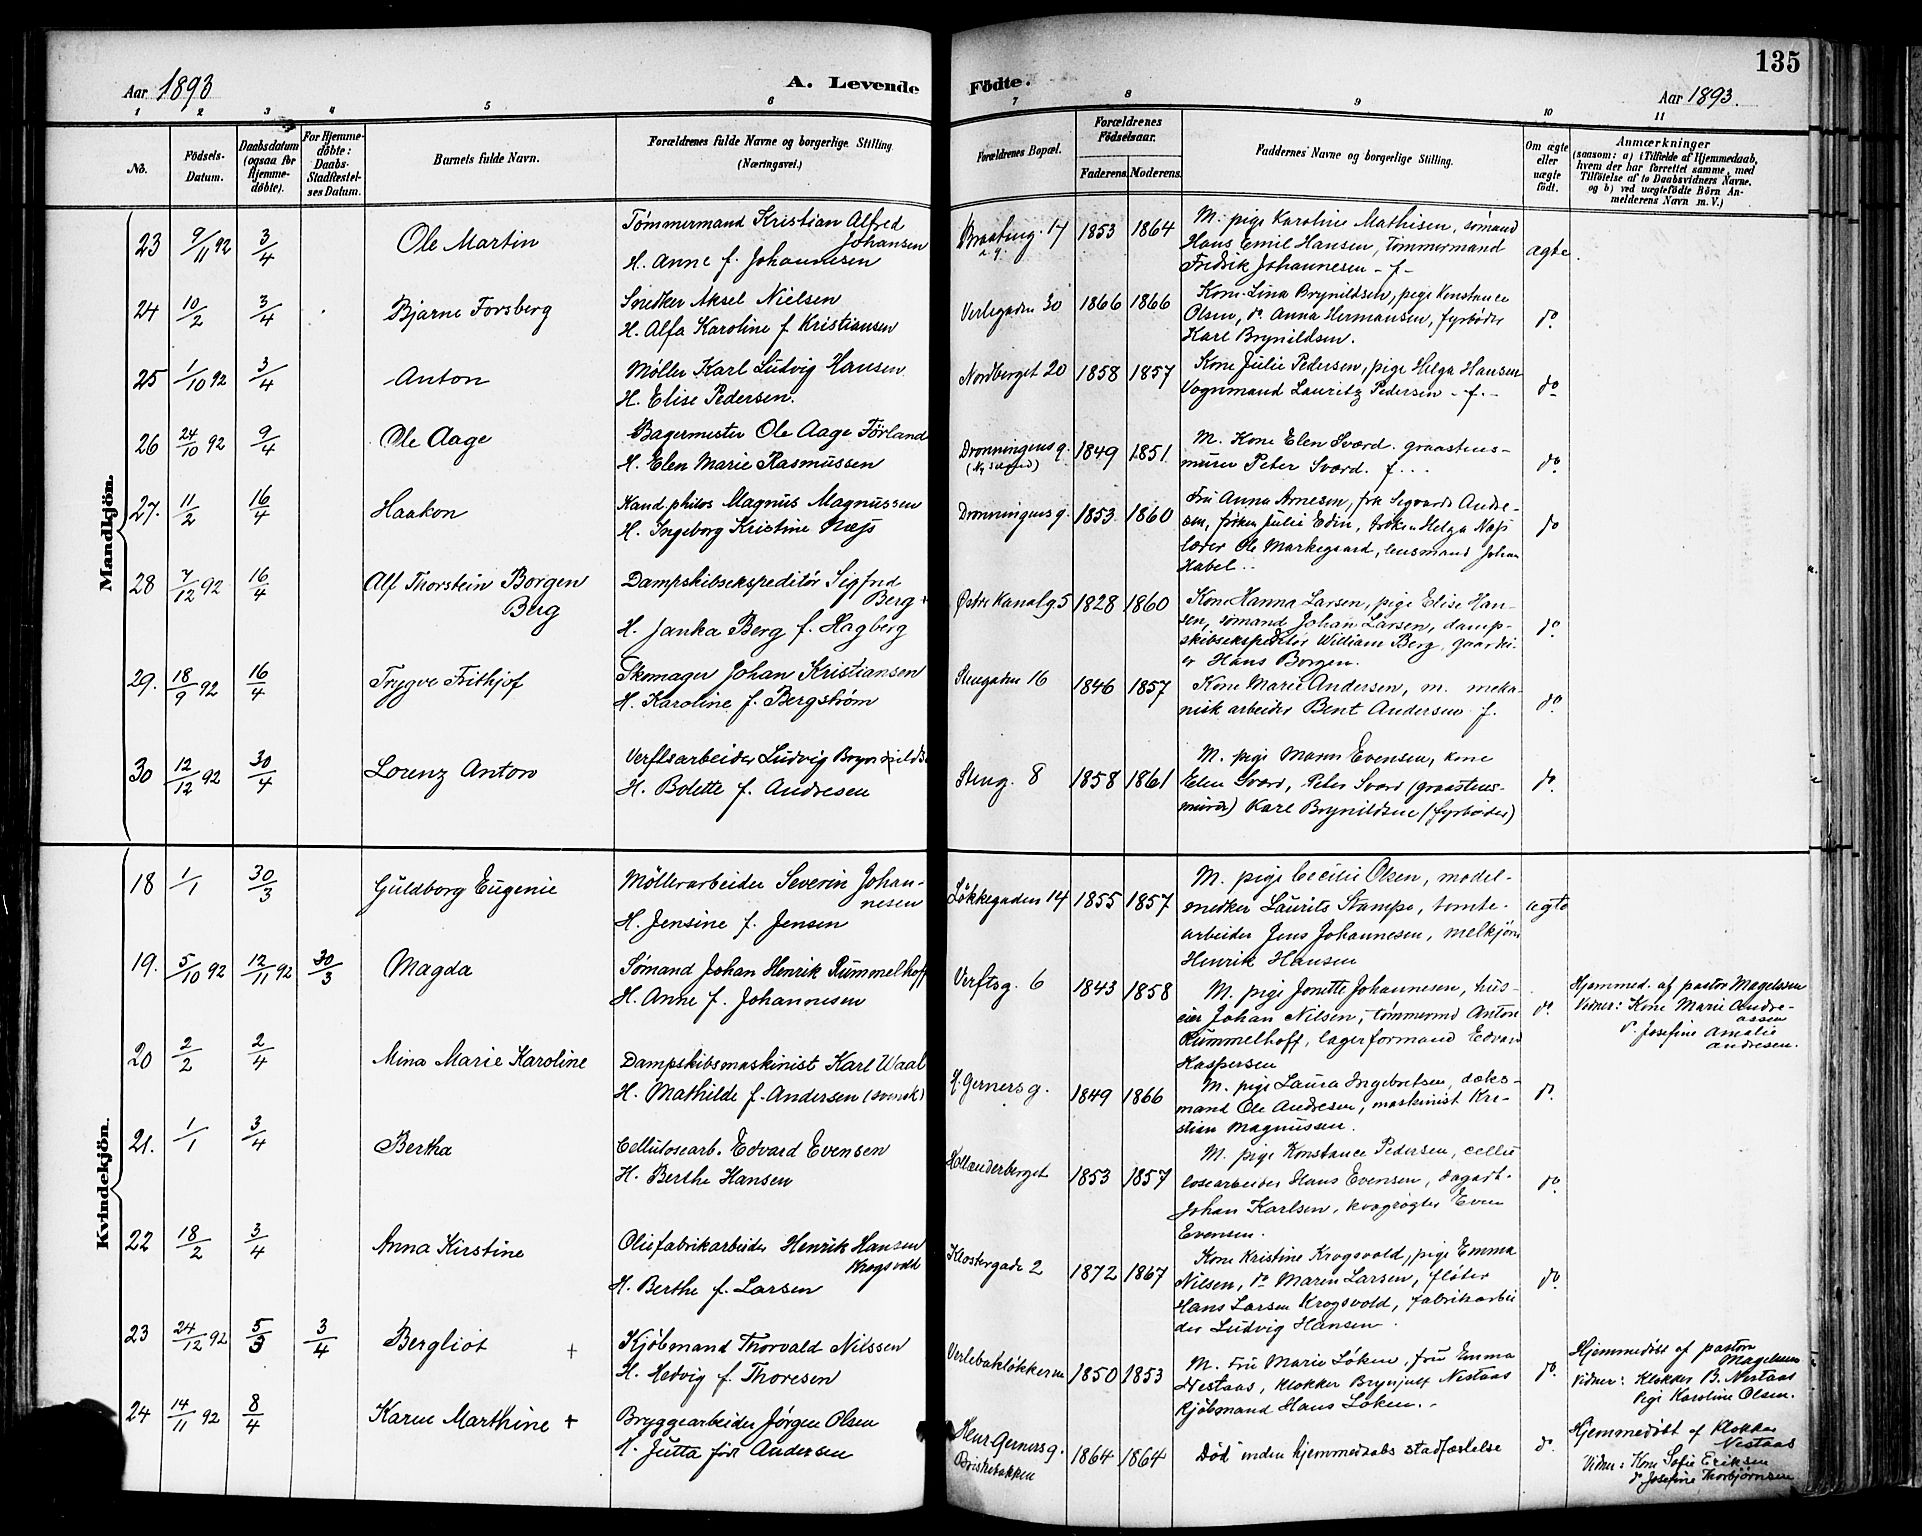 135
Aar 1893
A. Levende Fødte.
Aar 1893.
1 2 3 4 5 6 7 8 9 10 11
No.
Fødsels-
Datum.
Daabsdatum
(ogsaa for
Hjemme-
døbte).
For Hjemme-
døbte:
Daabs-
Stadfæstel-
ses Datum.
Barnets fulde Navn.
Forældrenes fulde Navne og borgerlige Stilling
(Næringsvei.)
Forældrenes Bopæl.
Forældrenes
Fødselsaar.
Faderens. Moderens.
Faddernes Navne og borgerlige Stilling.
Om ægte
eller
uægte
født.
Anmærkninger
(saasom: a) i Tilfælde af Hjemmedaab,
hvem der har forrettet samme, med
Tilføielse af to Daabsvidners Navne,
og b) ved uægtefødte Børn An-
melderens Navn m. V.)
Mandkjön.
23 9/11 92 3/4 Ole Martin
Tømmermand Kristian Alfred
Johansen
H. Anne f. Johannesen
17 1853 1864
M. pige Karoline Mathisen, sømand
Hans Emil Hansen, Tømmermand
Fredrik Johannesen - f-
ægte
24 10/2 3/4 Bjarne Forsberg
Snedker Aksel Nielsen
H. Alfa Karoline f Kristiansen
Verlegaden 30 1866 1866
Kone Lina Brynildsen, pige Konstance
Olsen, do Anna Hermansen, fyrbøder
Karl Brynildsen.
do
25 1/10 92 3/4 Anton
Møller Karl Ludvig Hansen
H. Elise Pedersen.
Nordberget 20 1858 1857
Kone Julie Pedersen, pige Helga Hansen
Vognmand Lauritz Pedersen - f. -
do
26 24/10 92 9/4 Ole Aage
Bagermester Ole Aage Førland
H. Elen Marie Rasmussen
Dronningens g. 1849 1851
M. Kone Elen Sværd. graastens-
murer Peter Sværd. f...
do
27. 11/2 16/4 Haakon
Kand philos Magnus Magnussen
H. Ingeborg Kristine Næss
Dronningens g. 1853 1860
Fru Anna Arnesen, frk Sigvarda Andre-
sen, frøken Julie Edin, frøken Helga Næss
lærer Ole Markegaard, lensmand Johan
Habel..
do
28 7/12 92 16/4 Alf Thorstein Borgen
Berg
Dampskibsekspeditør Sigfred
Berg +
H. Janka Berg f. Hagberg
Østre Kanalg. 5 1828 1860
Kone Hanna Larsen, pige Elise Han-
sen, sømand Johan Larsen, damp-
skibsekspeditør William Berg, gaardei-
er Hans Borgen.
do
29. 18/9 92 16/4 Trygve Frithjof
Skomager Johan Kristiansen
H. Karoline f. Bergstrøm
Stengaden 16 1846 1857
Kone Marie Andersen, m. meka-
nisk arbeider Bent Andersen f.
do
30 12/12 92 30/4 Lorenz Anton
Verftsarbeider Ludvig Brynildsen
H. Bolette f. Andresen
Steng. 8 1858 1861
M. pige Maren Evensen, kone
Elen Sværd, Peter Sværd (graastens-
murer) Karl Brynildsen (fyrbøder)
do
Kvindekjön.
18 1/1 30/3 Guldborg Eugenie
Møllerarbeider Severin Johan-
nesen
H. Jensine f. Jensen
Løkkegaden 14 1855 1857
M. pige Cecilie Olsen, model-
snedker Laurits Stampe, tomte-
arbeider Jens Johannesen, melkjører
Henrik Hansen
ægte
19. 5/10 92 12/11 92 30/3 Magda
Sømand Johan Henrik Rummelhoff
H. Anne f. Johannesen
Verftsg. 6 1843 1858
M. pige Jonette Johannesen, hus-
eier Johan Nilsen, tømmermd Anton
Rummelhoff, lagerformand Edvard
Kaspersen
do
Hjemmed. af pastor Magelssen
Vidner: Kone Marie Andre-
assen
do Josefine Amalie
Andresen.
20 2/2 2/4 Mina Marie Karoline
Dampskibsmaskinist Karl Waal
H. Mathilde f. Andersen (svensk)
H. Gerners g. 1849 1866
M. pige Laura Ingebretsen, doks-
mand Ole Andresen, maskinist Kri-
stian Magnussen.
do
21. 1/1 3/4 Bertha
Cellulosearb. Edvard Evensen
H. Berthe Hansen
Hollænderberget 1853 1857
M. pige Konstance Pedersen, cellu
losearbeider Hans Evensen, dagarb.
Johan Karlsen, krøgrøgter Even
Evensen.
do
22 18/2 3/4 Anna Kirstine
Oliefabrikarbeider Henrik Hansen
Krogsvold
H. Berthe f. Larsen
Klostergade 2 1872 1867
Kone Kristine Krogsvold, pige Emma
Nilsen, do Maren Larsen, fløter
Hans Larsen Krogsvold, fabrikarbei
der Ludvig Hansen.
do
23 24/12 92 5/3 3/4 Bergliot +
Kjøbmand Thorvald Nilssen
H. Hedvig f. Thoresen
Verlebakløkkerne 1850 1853
M. Fru Marie Løken, fru Emma
Nestaas, Klokker Brynjulf Nestaas
Kjøbmand Hans Løken..
do
Hjemmedøbt af pastor
Magelssen
Vidner: Klokker B. Nestaas
Pige Karoline Olsen.
24 14/11 92 8/4 Karen Marthine +
Bryggearbeider Jørgen Olsen
H. Jutta før Andersen
Henr Gerners g.
1864 1864
Død inden hjemmedaabs stadfæstelse
do
Hjemmedøbt af Klokker
Nestaas
Vidner: Kone Sofie Eriksen
do Josefine Thorbjørnsen